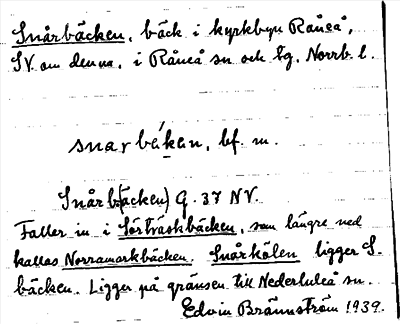 Snårbäcken, bäck i kyrkbyn Råneå,
SV om denna, i Råneå sn och tg, Norrb. l.
snarbékan, bf. m.
Snårb(äcken) G. 37 NV.
Faller in i Sörträskbäcken, som längre ned
kallas Norramarkbäcken. Snårkölen ligger S.
bäcken. Ligger på gränsen till Nederluleå sn.
Edvin Brännström 1939.